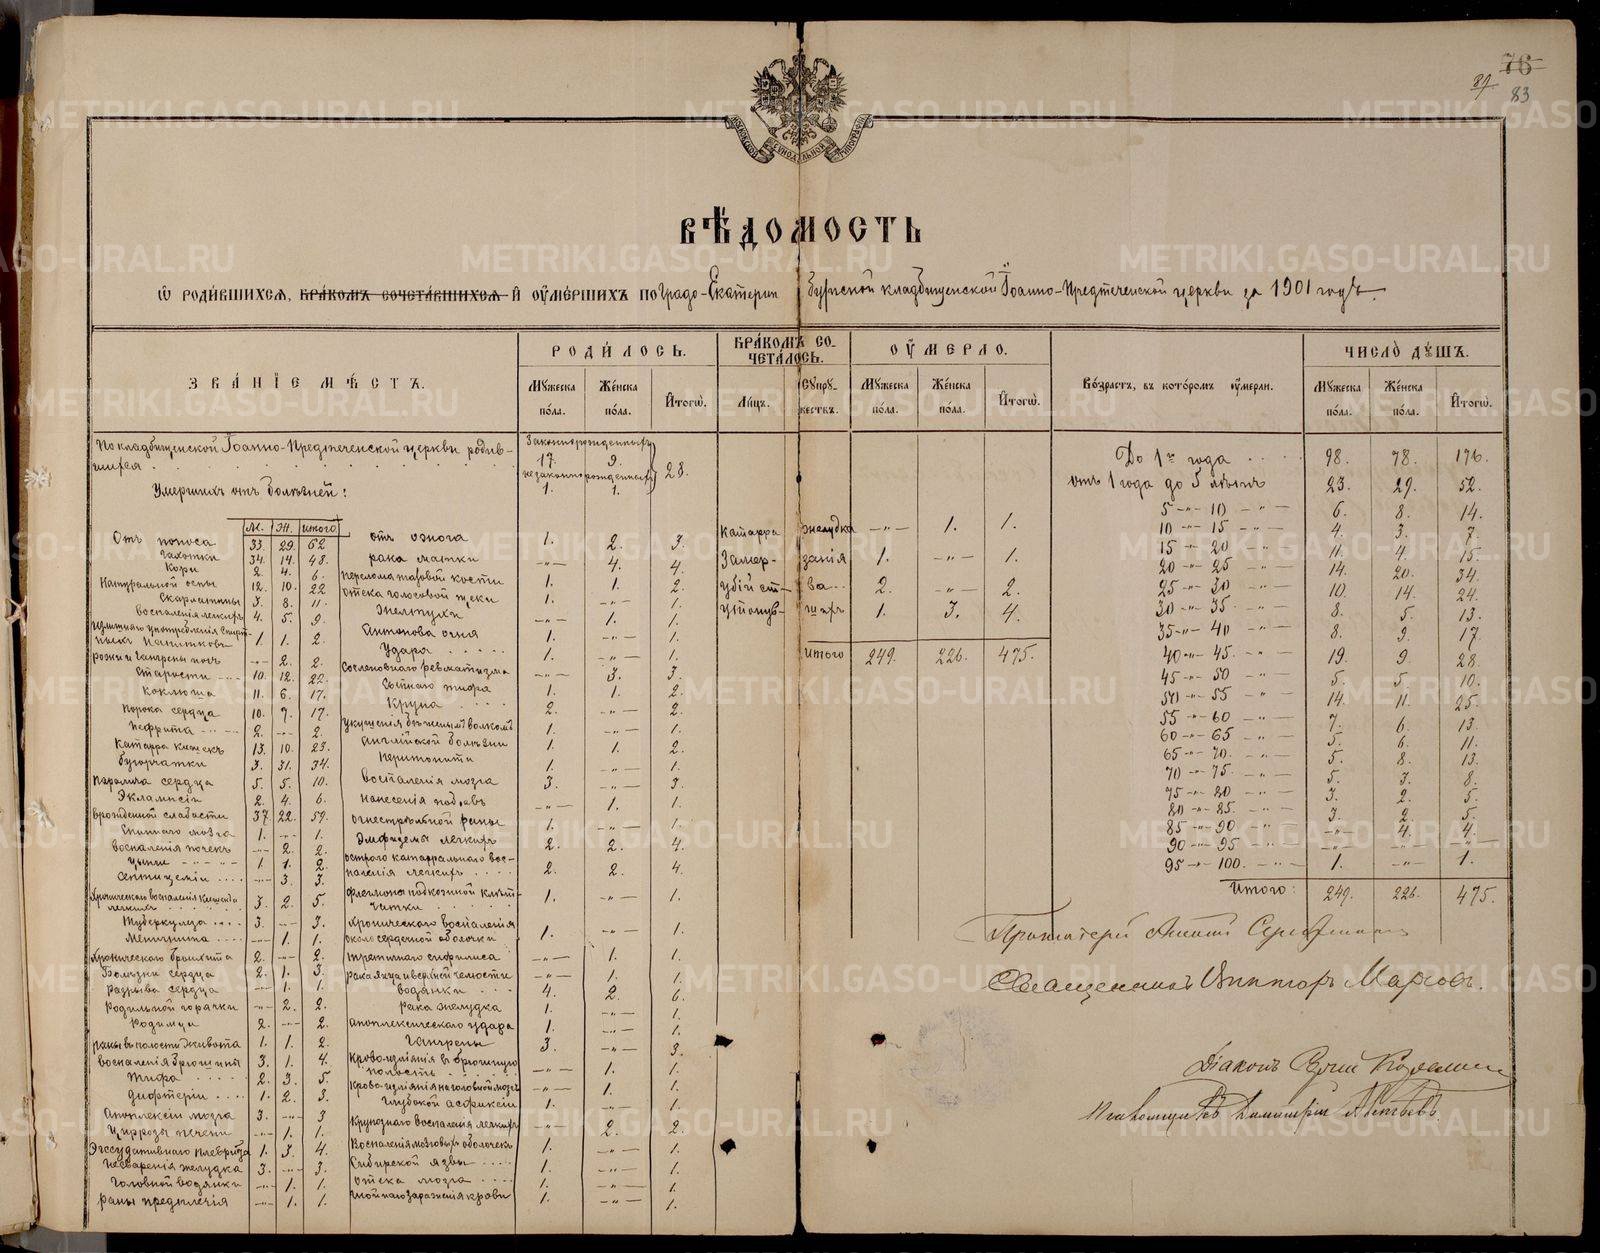 76
83
МОСКОВСКОЙ СѴНОДАЛЬНОЙ ТИПОГРАФІИ
ВѢДОМОСТЬ
Ѡ РОДИ́ВШИХСЯ, БРА́КОМЪ СОЧЕТА́ВШИХСЯ И҆ ОУ҆МЕ́РШИХЪ ПО Градо-Екатеринбургской кладбищенской Іоанно-Предтеченской церкви за 1901 годъ.
ЗВА́НІЕ МѢ́СТЪ.
РОДИ́ЛОСЬ.
БРА́КОМЪ СО-
ЧЕТА́ЛОСЬ.
ОУ҆́МЕРЛО.
Во́зрастъ, въ кото́ромъ оу҆́мерли.
ЧИСЛО̀ ДꙊ́ШЪ.
Мꙋ́жеска по́ла. Же́нска по́ла. И҆тогѡ̀. Ли́цъ. Сꙋпрꙋ́жествъ. Мꙋ́жеска по́ла. Же́нска по́ла. И҆тогѡ̀. Мꙋ́жеска по́ла. Же́нска по́ла. И҆тогѡ̀.
По кладбищенской Іоанно-Предтеченской церкви родив-
шихся
Законнорожденныхъ
17. 9.
незаконнорожденныхъ
1. 1.
28.
Умершихъ отъ болѣзней:
М. Ж. итого
Отъ поноса 33. 29. 62
Чахотки 34. 14. 48.
Кори 2. 4. 6.
Натуральной оспы 12. 10. 22
Скарлатины 3. 8. 11.
воспаленія легкихъ 4. 5. 9.
излишняго употребленія спирт-
ныхъ напитковъ 1. 1. 2.
рожи и гангрены ногъ -"- 2. 2.
Старости 10. 12. 22.
Коклюша 11. 6. 17.
Порока сердца 10. 7. 17.
Нефрита 2. -"- 2.
Катарра кишекъ 13. 10. 23.
бугорчатки 3. 31. 34.
Паралича сердца 5. 5. 10.
Экламсіи 2. 4. 6.
врожденной слабости 37. 22. 59.
Спиннаго мозга 1. -"- 1.
воспаленія почекъ -"- 2. 2.
Цынги 1. 1. 2.
Септицеміи -"- 3. 3.
Хроническаго воспаленія
легкихъ 3. 2. 5.
Туберкулеза 3. -"- 3.
Менингита -"- 1. 1.
Хроническаго бронхита 2. -"- 2.
Болѣзни сердца 2. 1. 3.
Разрыва сердца -"- 1. 1.
Родильной горячки -"- 2. 2.
Родимца 2. -"- 2.
раны въ полости живота 1. 1. 2.
воспаленія брюшины 3. 1. 4.
Тифа 2. 3. 5.
Дифтеріи 1. 2. 3.
Апоплексіи мозга 3. -"- 3
Цирроза печени -"- 1. 1.
Эксудативнаго плеврита 1. 3. 4.
Несваренія желудка 3. -"- 3.
Головной водянки -"- 1. 1.
раны предплечія -"- 1. 1.
отъ ожога 1. 2. 3.
рака матки -"- 4. 4.
перелома тазовой кости 1. 1. 2.
отека голосовой щели 1. -"- 1.
Желтухи -"- 1. 1.
Антонова огня 1. -"- 1.
Удара 1. -"- 1.
Сочленовнаго ревматизма -"- 3. 3.
Сыпнаго тифа 1. 1. 2.
Крупа 2. -"- 2.
укушенія бѣшенымъ волкомъ 1. -"- 1.
Англійской болѣзни 1. 1. 2.
Перитонита 1. -"- 1.
Воспаленія мозга 3. -"- 3.
Нанесенія побоевъ -"- 1. 1.
огнестрѣльной раны 1. -"- 1.
Эмфиземы легкихъ 2. 2. 4.
острого катаррального вос-
паленія легкихъ 2. 2. 4.
Флегмона подкожной клѣт-
чатки 1. -"- 1.
Хронического воспаленія
околосердечной оболочки 1. -"- 1.
третичнаго сифилиса -"- 1. 1.
рака лица и верхней челюсти -"- 1. 1.
водянки 4. 2. 6.
рака желудка 1. -"- 1.
апоплексическаго удара 1. -"- 1.
Гангрены 3. -"- 3.
Кровоизліянія въ брюшную
полость -"- 1. 1.
Кровоизліянія на головной мозгъ -"- 1. 1.
Глубокой асфиксіи 1. -"- 1.
Крупознаго воспаленія легкихъ -"- 2. 2.
Воспаленія мозговыхъ оболочекъ 1. -"- 1.
Сибирской язвы 1. -"- 1.
Отека мозга 1. -"- 1.
гнойнаго зараженія крови 1. -"- 1.
Катарра желудка -"- 1. 1.
Замерзанія 1. -"- 1.
убійства 2. -"- 2.
утонувшихъ 1. 3. 4.
итого 249. 226. 475.
До 1го года 98. 78. 176.
отъ 1 года до 5 лѣтъ 23. 29. 52.
5 -"- 10 -"- 6. 8. 14.
10 -"- 15 -"- 4. 3. 7.
15 -"- 20 -"- 11. 4. 15.
20 -"- 25 -"- 14. 20. 34.
25 -"- 30 -"- 10. 14. 24.
30 -"- 35 -"- 8. 5. 13.
35 -"- 40 -"- 8. 9. 17.
40 -"- 45 -"- 19. 9. 28.
45 -"- 50 -"- 5. 5. 10.
50 -"- 55 -"- 14. 11. 25.
55 -"- 60 -"- 7. 6. 13.
60 -"- 65 -"- 5. 6. 11.
65 -"- 70 -"- 5. 8. 13.
70 -"- 75 -"- 5. 3. 8.
75 -"- 80 -"- 3. 2. 5.
80 -"- 85 -"- 3. 2. 5.
85 -"- 90 -"- -"- 4. 4.
90 -"- 95 -"- -"- -"- -"-
95 -"- 100 -"- 1. -"- 1.
Итого: 249. 226. 475.
Протоіерей
Священникъ Викторъ Марковъ.
Діаконъ
Псаломщикъ Димитрій
METRIKI.GASO-URAL.RU